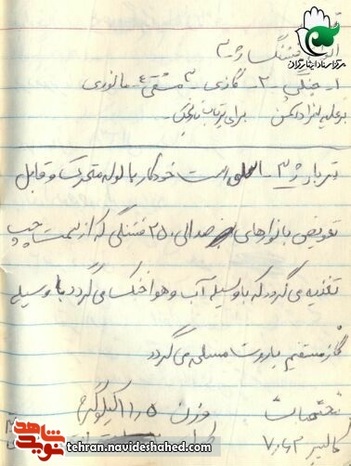 مرکز اسناد ایثارگران
فشنگ ژ-۳
۱- جنگی - ۲- گازی - ۳- مشقی ۴- مانوری
برای پرتاب نارنجک
تیربار ژ-۳ - است خودکار با لوله متحرک و قابل
تعویض با نوارهای ۲۵ فشنگی که از سمت چپ
تغذیه می گردد که با وسیله آب و هوا خنک می گردد با وسیله
گاز مستقیم باروت مسلح می گردد
مشخصات وزن ۱۱/۵ کیلوگرم
کالیبر ۷/۶۲
نوید شاهد
tehran.navideshahed.com